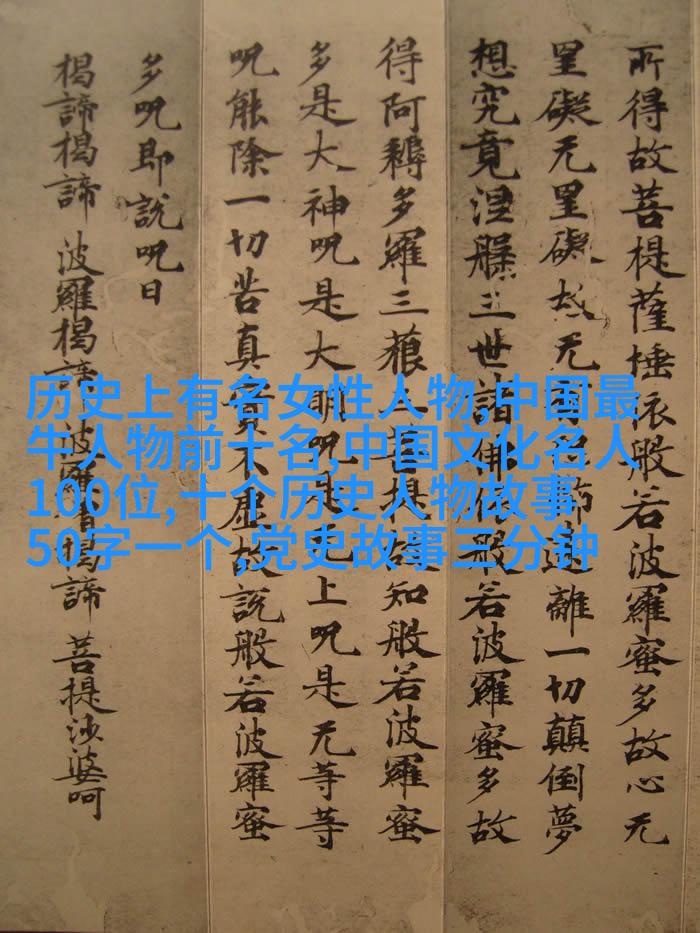 所得故菩提薩埵依般若波羅蜜多故心无
罣礙无罣礙故无怖遠離一切顛倒夢
想究竟涅槃三世諸佛依般若波羅蜜多故
得阿耨多羅三藐三菩提故知般若波羅蜜
多是大神呪是大明呪是无上呪是无等等
呪能除一切苦真實不虛故説般若波羅蜜
多呪即説呪曰
揭諦揭諦 波羅揭諦 波羅僧揭諦 菩提沙婆呵
历史上有名女性人物,中国最
牛人物前十名,中国文化名人
100位,十个历史人物故事
50字一个,党史故事三分钟